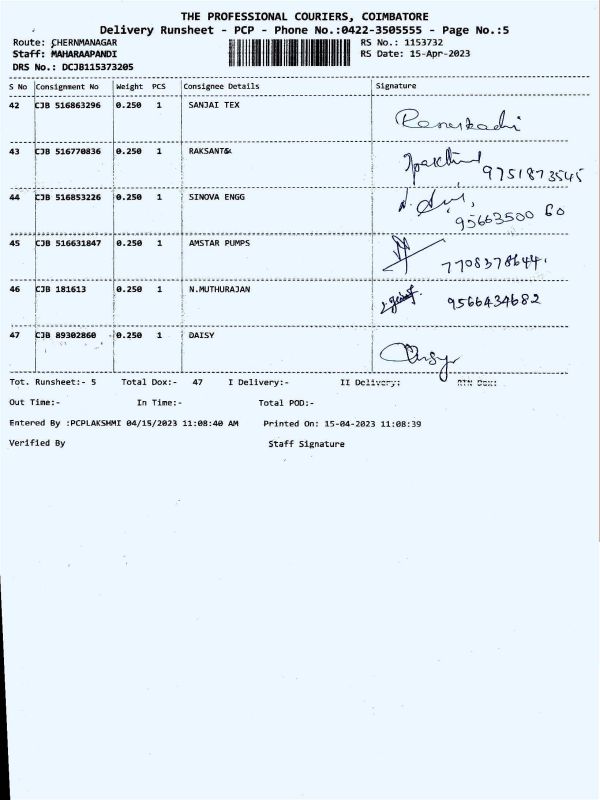 THE PROFESSIONAL COURIERS, COIMBATORE
Delivery Runsheet - PCP - Phone No.:0422-3505555 - Page No.:5
Route: CHERNMANAGAR RS No.: 1153732
Staff: MAHARAAPANDI RS Date: 15-Apr-2023
DRS No.: DCJB115373205
S No Consignment No Weight PCS Consignee Details Signature
42 CJB 516863296 0.250 1 SANJAI TEX
43 CJB 516770836 0.250 1 RAKSANT& 9751873545
44 CJB 516853226 0.250 1 SINOVA ENGG 95663500 60
45 CJB 516631847 0.250 1 AMSTAR PUMPS 7708378644.
46 CJB 181613 0.250 1 N.MUTHURAJAN 9566434682
47 CJB 89302860 0.250 1 DAISY
Tot. Runsheet:- 5 Total Dox:- 47 I Delivery:- II Delivery:
Out Time:- In Time:- Total POD:-
Entered By :PCPLAKSHMI 04/15/2023 11:08:40 AM Printed On: 15-04-2023 11:08:39
Verified By Staff Signature